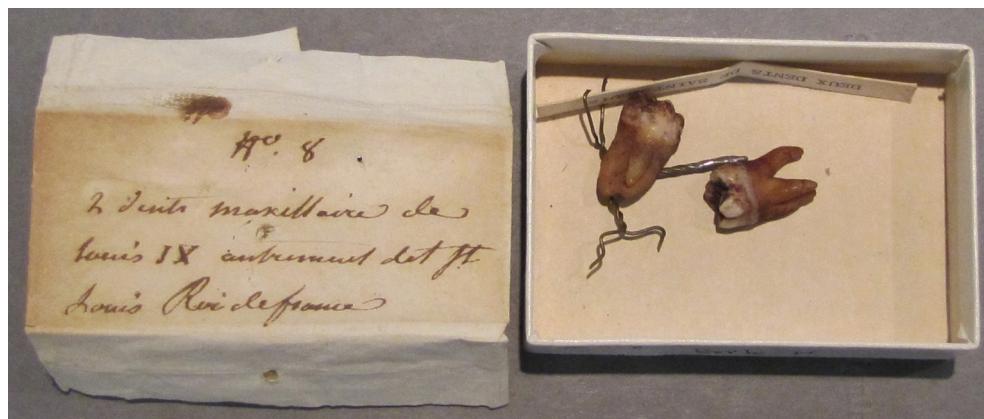 N°. 8
2 dents maxillaire de
Louis IX autrement dit St
Louis Roi de france
DEUX DENTS
DE SAINT